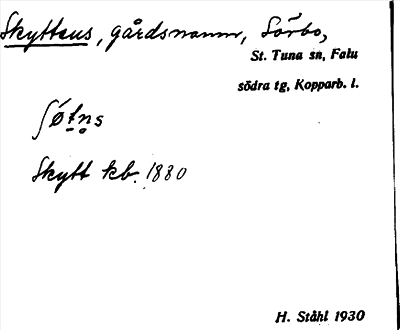 Skyttens, gårdsnamn, Sörbo,
St. Tuna sn, Falu
södra tg, Kopparb. l.
ʃøtn̥s
Skytt kb. 1880
H. Ståhl 1930